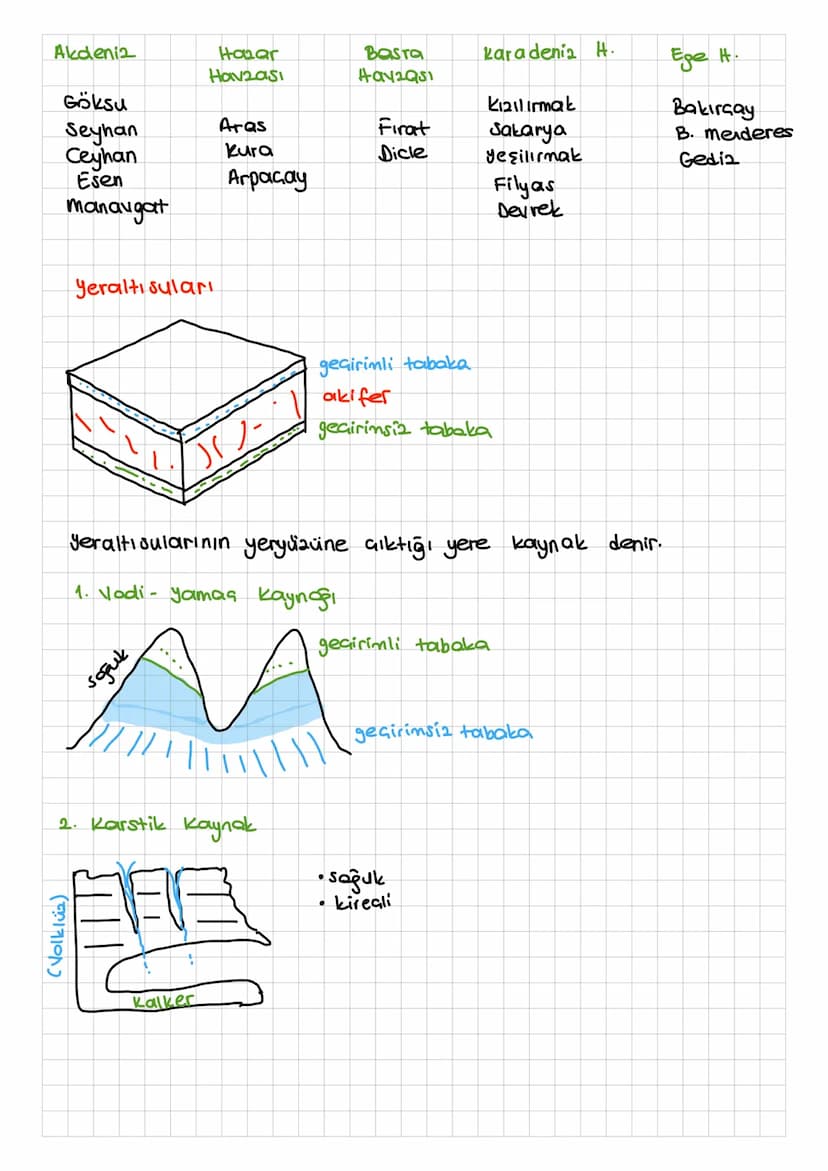 Akdeniz
Göksu
Seyhan
Ceyhan
Esen
Manavgat
Hazar
Havzası
Aras
Kura
Arpaçay
Basra
Havzası
Fırat
Dicle
Karadeniz H.
Kızılırmak
Sakarya
Yeşilırmak
Filyas
Devrek
Ege H.
Bakırçay
B. menderes
Gediz
Yeraltı suları
geçirimli tabaka
akifer
geçirimsiz tabaka
Yeraltı sularının yeryüzüne çıktığı yere kaynak denir.
1. Vadi - Yamaç Kaynağı
soğuk
geçirimli tabaka
geçirimsiz tabaka
2. Karstik Kaynak
(Volklüz)
• soğuk
• kireçli
Kalker